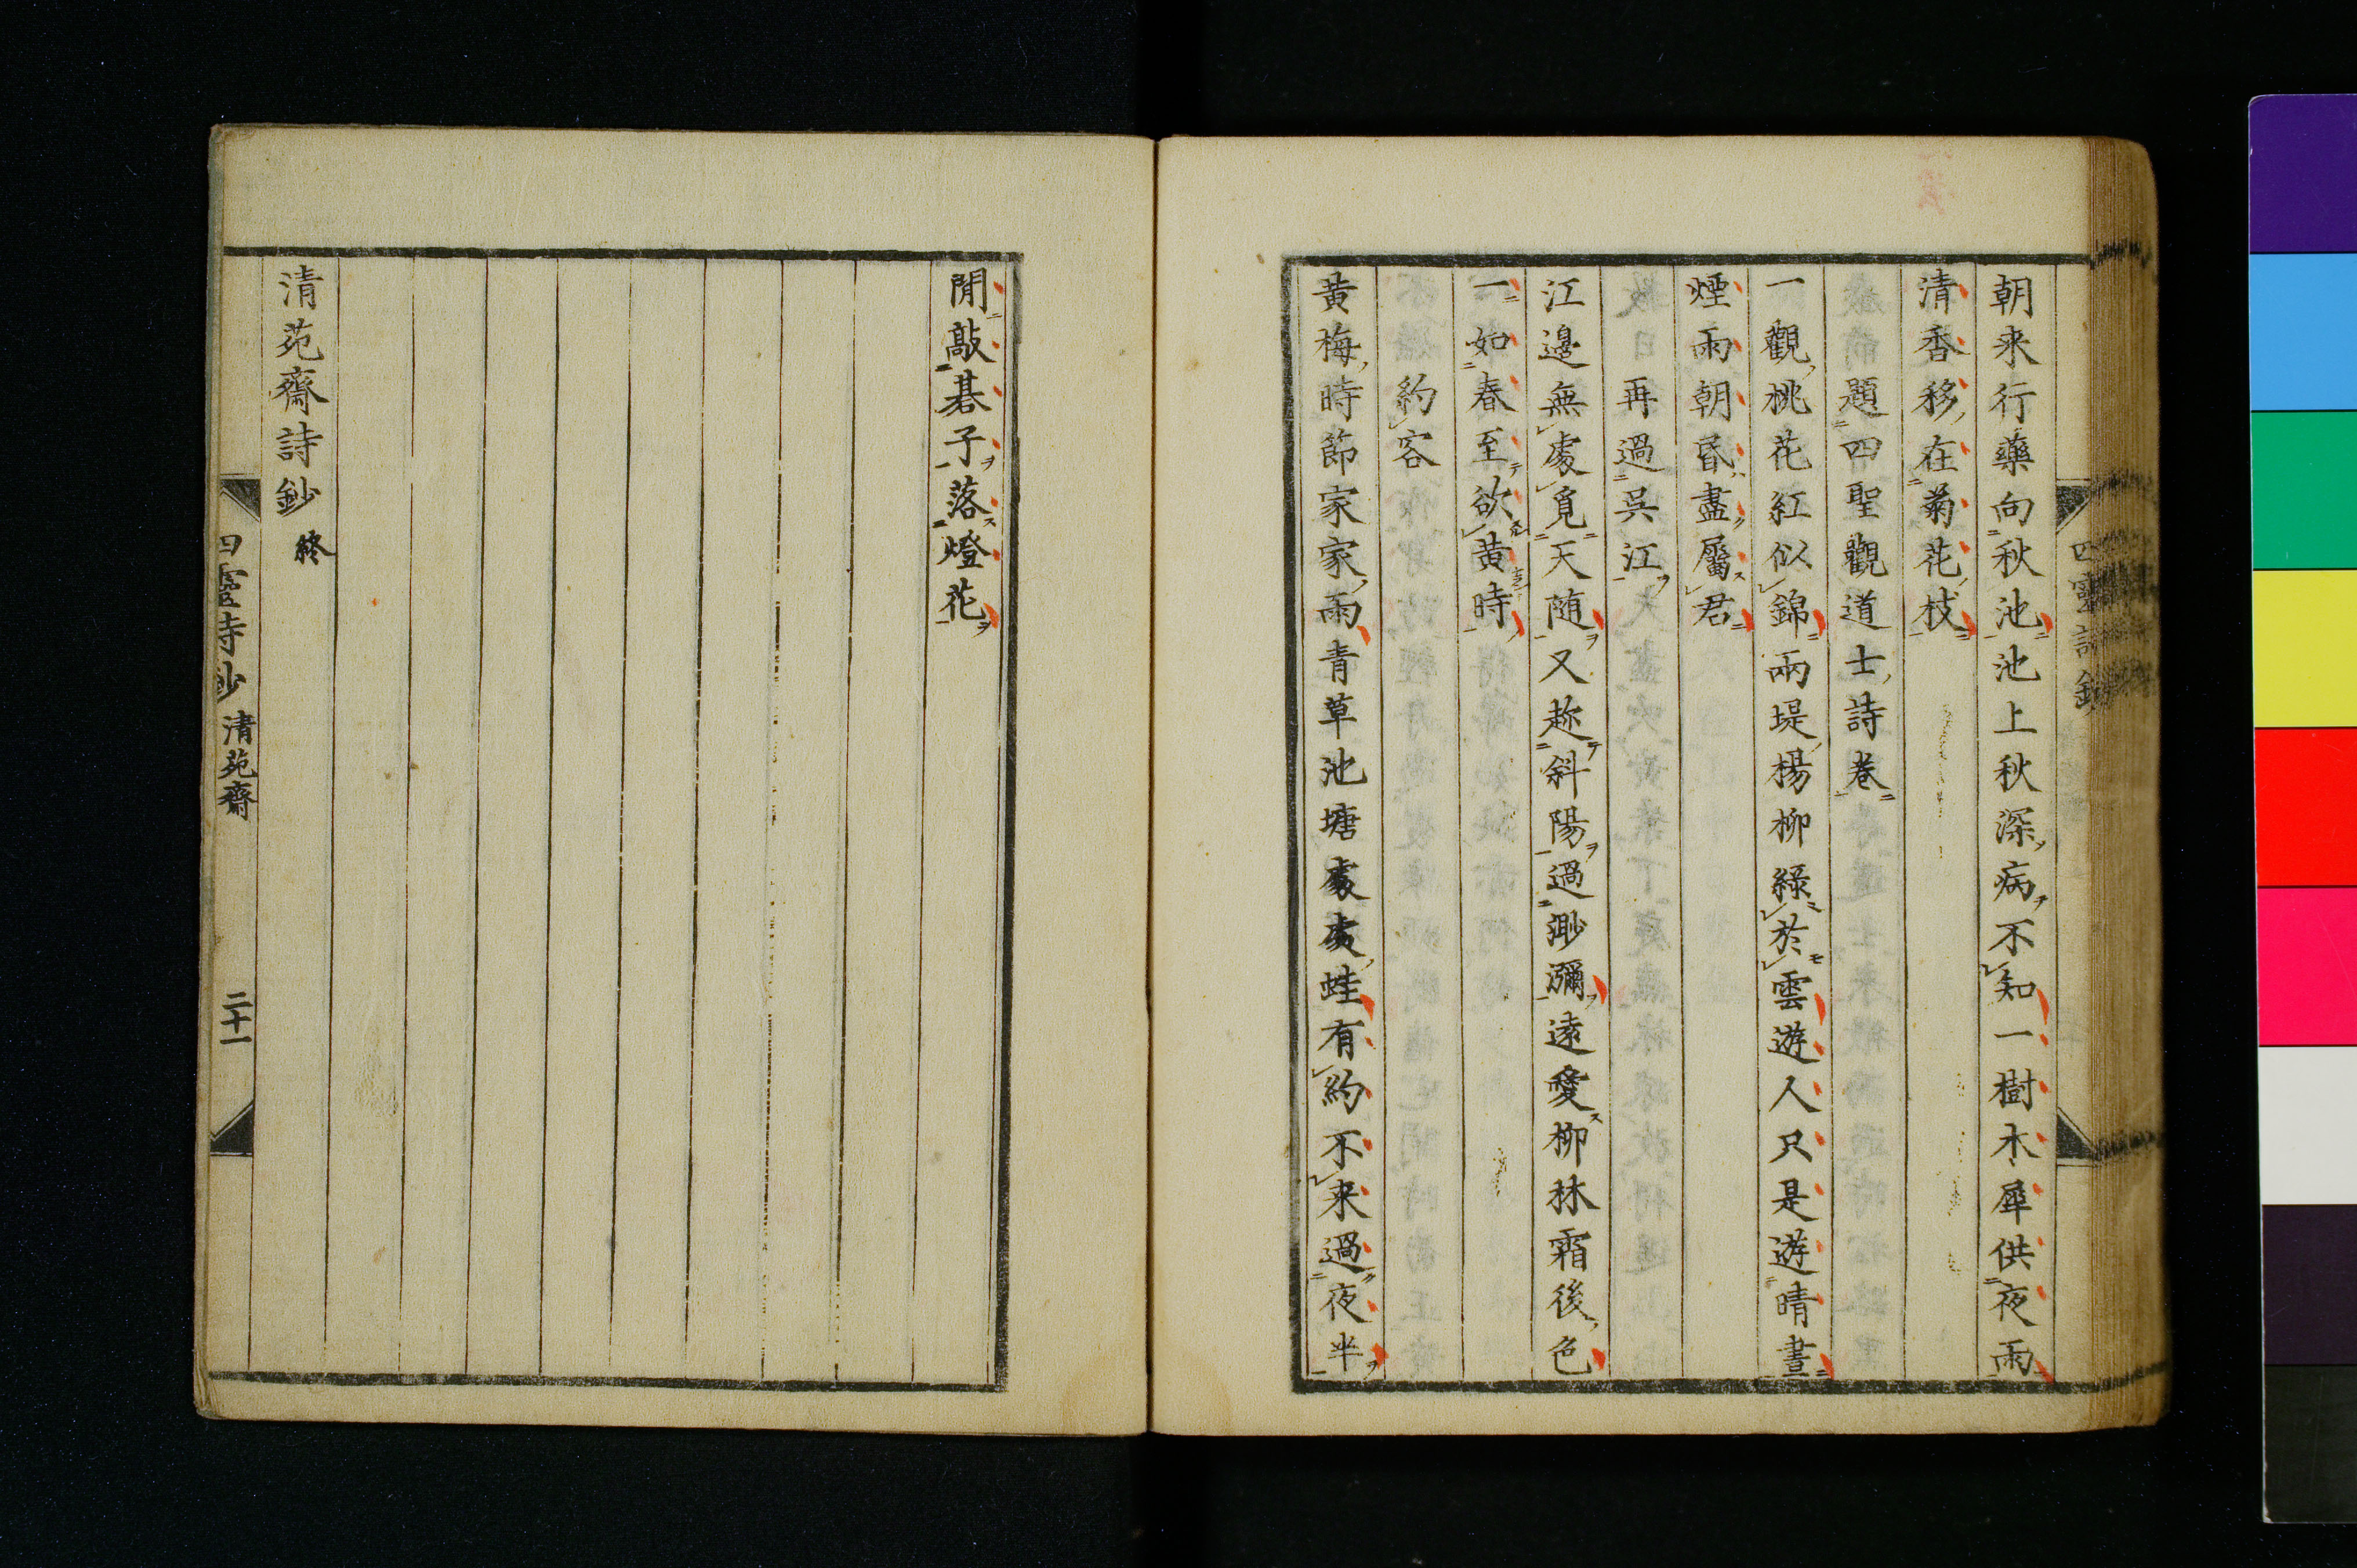 朝来行藥向秋池池上秋深病不知一樹木犀供夜雨
清香移在菊花枝
題四聖觀道士詩卷
一觀桃花紅似錦兩堤楊柳綠於雲遊人只是遊晴晝
煙雨朝昏盡屬君
再過吳江
江邊無處覓天随又趂斜陽過渺瀰遠愛柳林霜後色
一如春至欲黃時
約客
黃梅時節家家雨青草池塘處處蛙有約不来過夜半
閒敲碁子落燈花
清苑齋詩鈔 終
四靈詩鈔 清苑齋 二十一